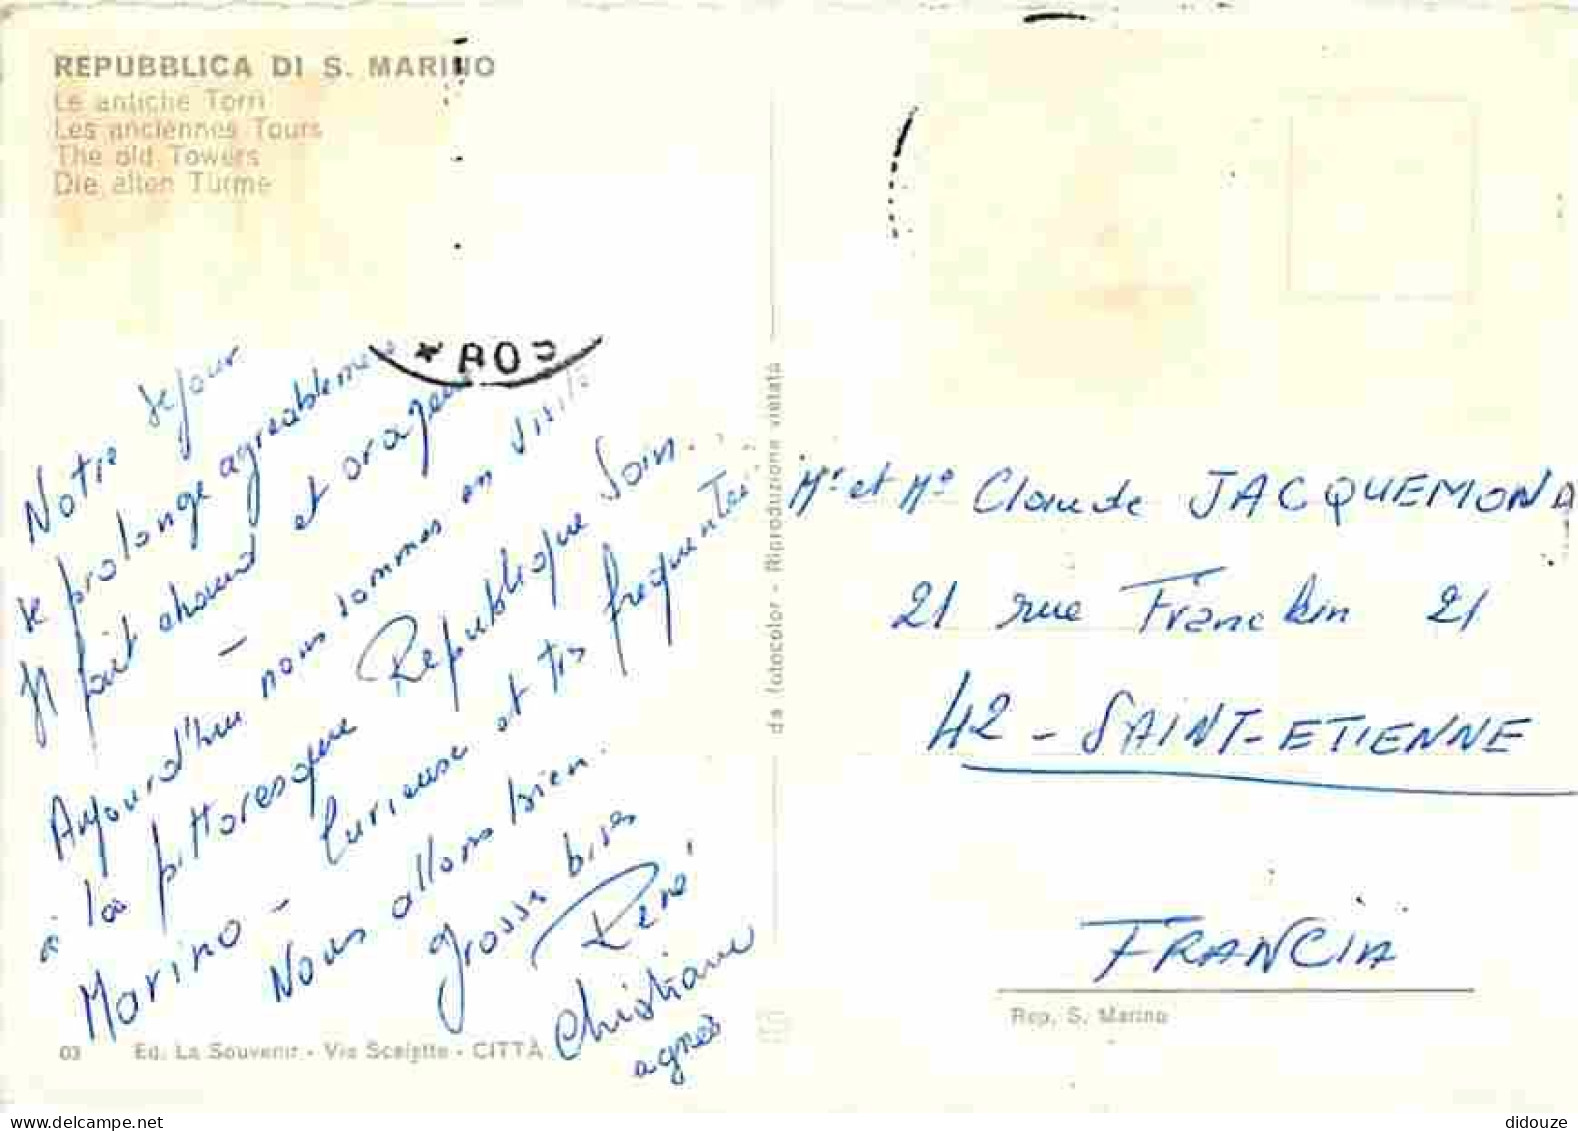 REPUBBLICA DI S. MARINO
Le antiche Torri
Les anciennes Tours
The old Towers
Die alten Türme
Notre séjour
se prolonge agréablement
Il fait chaud et orageux
-
Aujourd'hui nous sommes en visite
à la pittoresque Republique Soin.
Marino - curieuse et très fréquentée.
Nous allons bien.
grosses bises
René
Christiane
agnès
03 Ed. La Souvenir - Via Scalette - CITTÀ
da fotocolor - Riproduzione vietata
Mr et Me Claude JACQUEMOND
21 rue Francklin 21
42 - SAINT-ETIENNE
FRANCIA
Rep. S. Marino
didouze